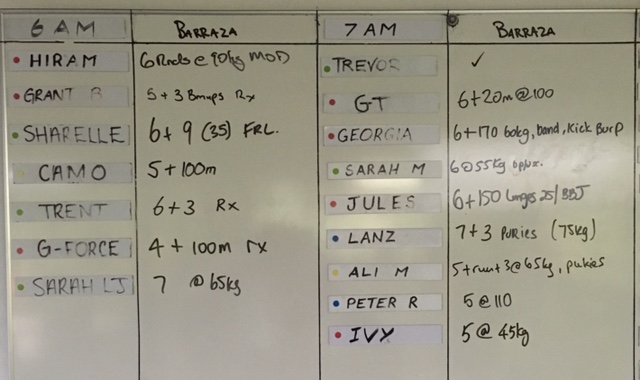 6 AM BARRAZA 7 AM BARRAZA
HIRAM 6 Rnds @ 90kg MOD
GRANT B 5 + 3 Bmups Rx
SHARELLE 6 + 9 (35) FRL.
CAMO 5 + 100m
TRENT 6 + 3 Rx
G-FORCE 4 + 100m rx
SARAH LJ 7 @ 65kg
TREVOR ✓
GT 6 + 20m @ 100
GEORGIA 6 + 170 60kg, band, Kick Burp
SARAH M 6 @ 55kg
JULES 6 + 150 lunges 25/ BBJ
LANZ 7 + 3 PUKIES (75kg)
ALI M 5 + run + 3 @ 65kg, pukies
PETER R 5 @ 110
IVY 5 @ 45kg